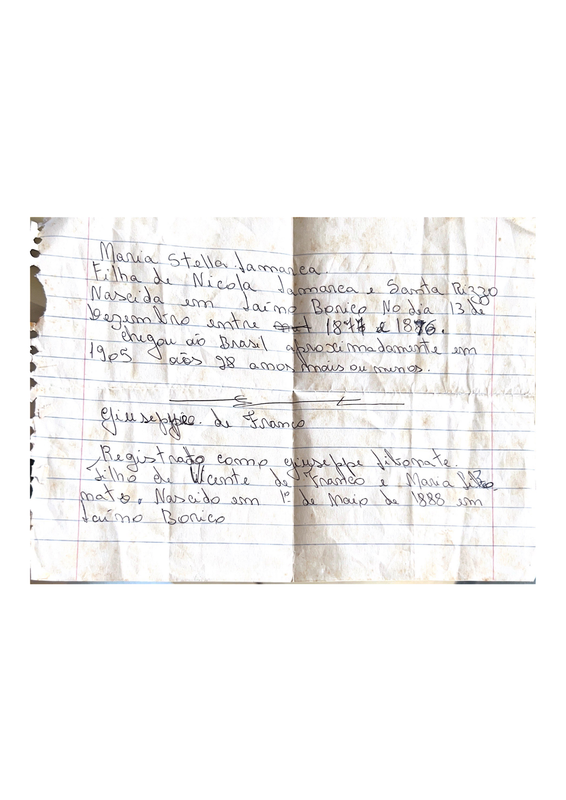 Maria Stella Lamarca.
Filha de Nicola Lamarca e Santa Rizzo
Nascida em Laíno Borico No dia 13 de
Dezembro entre 1877 e 1876.
chegou ao Brasil aproximadamente em
1905 aos 28 anos mais ou menos.
Giuseppe de Franco
Registrado como Giuseppe Libonate.
filho de Vicente de Franco e Maria Libo
nato. Nascido em 1º de Maio de 1888 em
Laíno Borico